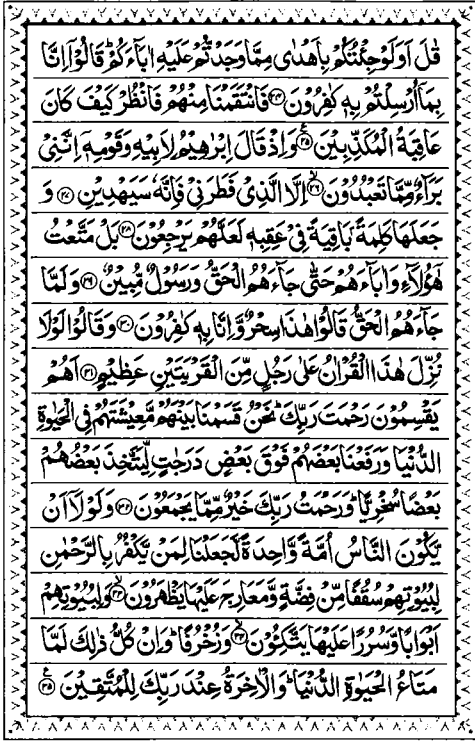 قٰلَ اَوَلَوْ جِئْتُكُمْ بِاَهْدٰى مِمَّا وَجَدْتُّمْ عَلَيْهِ اٰبَآءَكُمْ ؕ قَالُوْۤا اِنَّا
بِمَاۤ اُرْسِلْتُمْ بِهٖ كٰفِرُوْنَ ﴿۲۴﴾ فَانْتَقَمْنَا مِنْهُمْ فَانْظُرْ كَيْفَ كَانَ
عَاقِبَةُ الْمُكَذِّبِيْنَ ﴿۲۵﴾ وَاِذْ قَالَ اِبْرٰهِيْمُ لِاَبِيْهِ وَقَوْمِهٖۤ اِنَّنِيْ
بَرَآءٌ مِّمَّا تَعْبُدُوْنَ ﴿۲۶﴾ اِلَّا الَّذِيْ فَطَرَنِيْ فَاِنَّهٗ سَيَهْدِيْنِ ﴿۲۷﴾ وَ
جَعَلَهَا كَلِمَةً ۢ بَاقِيَةً فِيْ عَقِبِهٖ لَعَلَّهُمْ يَرْجِعُوْنَ ﴿۲۸﴾ بَلْ مَتَّعْتُ
هٰۤؤُلَآءِ وَاٰبَآءَهُمْ حَتّٰى جَآءَهُمُ الْحَقُّ وَرَسُوْلٌ مُّبِيْنٌ ﴿۲۹﴾ وَلَمَّا
جَآءَهُمُ الْحَقُّ قَالُوْا هٰذَا سِحْرٌ وَّاِنَّا بِهٖ كٰفِرُوْنَ ﴿۳۰﴾ وَقَالُوْا لَوْلَا
نُزِّلَ هٰذَا الْقُرْاٰنُ عَلٰى رَجُلٍ مِّنَ الْقَرْيَتَيْنِ عَظِيْمٍ ﴿۳۱﴾ اَهُمْ
يَقْسِمُوْنَ رَحْمَتَ رَبِّكَ ؕ نَحْنُ قَسَمْنَا بَيْنَهُمْ مَّعِيْشَتَهُمْ فِي الْحَيٰوةِ
الدُّنْيَا وَرَفَعْنَا بَعْضَهُمْ فَوْقَ بَعْضٍ دَرَجٰتٍ لِّيَتَّخِذَ بَعْضُهُمْ
بَعْضًا سُخْرِيًّا ؕ وَرَحْمَتُ رَبِّكَ خَيْرٌ مِّمَّا يَجْمَعُوْنَ ﴿۳۲﴾ وَلَوْلَاۤ اَنْ
يَّكُوْنَ النَّاسُ اُمَّةً وَّاحِدَةً لَّجَعَلْنَا لِمَنْ يَّكْفُرُ بِالرَّحْمٰنِ
لِبُيُوْتِهِمْ سُقُفًا مِّنْ فِضَّةٍ وَّمَعَارِجَ عَلَيْهَا يَظْهَرُوْنَ ﴿۳۳﴾ وَلِبُيُوْتِهِمْ
اَبْوَابًا وَّسُرُرًا عَلَيْهَا يَتَّكِـُٔوْنَ ﴿۳۴﴾ وَزُخْرُفًا ؕ وَاِنْ كُلُّ ذٰلِكَ لَمَّا
مَتَاعُ الْحَيٰوةِ الدُّنْيَا ؕ وَالْاٰخِرَةُ عِنْدَ رَبِّكَ لِلْمُتَّقِيْنَ ﴿۳۵﴾